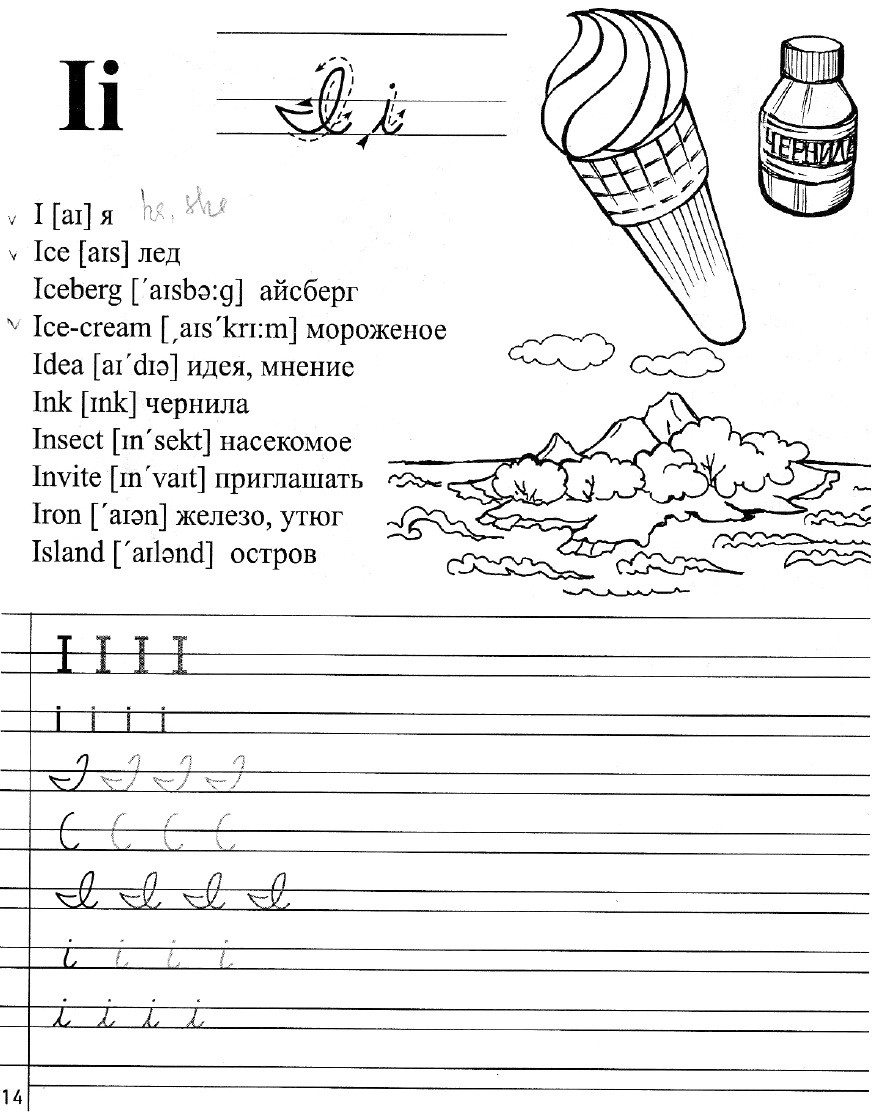 Ii
I i
ЧЕРНИЛА
I [aɪ] я he, she
Ice [aɪs] лед
Iceberg [ˊaɪsbə:g] айсберг
Ice-cream [ˏaɪsˊkrɪ:m] мороженое
Idea [aɪˊdɪə] идея, мнение
Ink [ɪnk] чернила
Insect [ɪnˊsekt] насекомое
Invite [ɪnˊvaɪt] приглашать
Iron [ˊaɪən] железо, утюг
Island [ˊaɪlənd] остров
I I I I
i i i i
I I I I
i i i i
i i i i
14